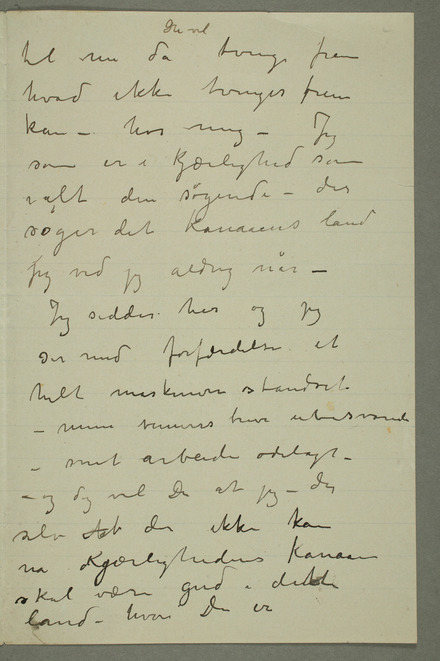 Du vil
til nu da tvinge frem
hvad ikke tvinges frem
kan – hos mig – Jeg
som er i Kjærlighed som
alt den søgende – der
søger det Kanaaens land
jeg ved jeg aldrig når –
Jeg sidder her og jeg
ser med forfærdelse et
helt maskineri standset
– mine venners breve ubesvarede
– mit arbeide ødelagt –
– og dog vil Du at jeg – der
selv der ikke kan
na Kjærlighedens Kanaan
skal være gud i dette
land – hvor Du er